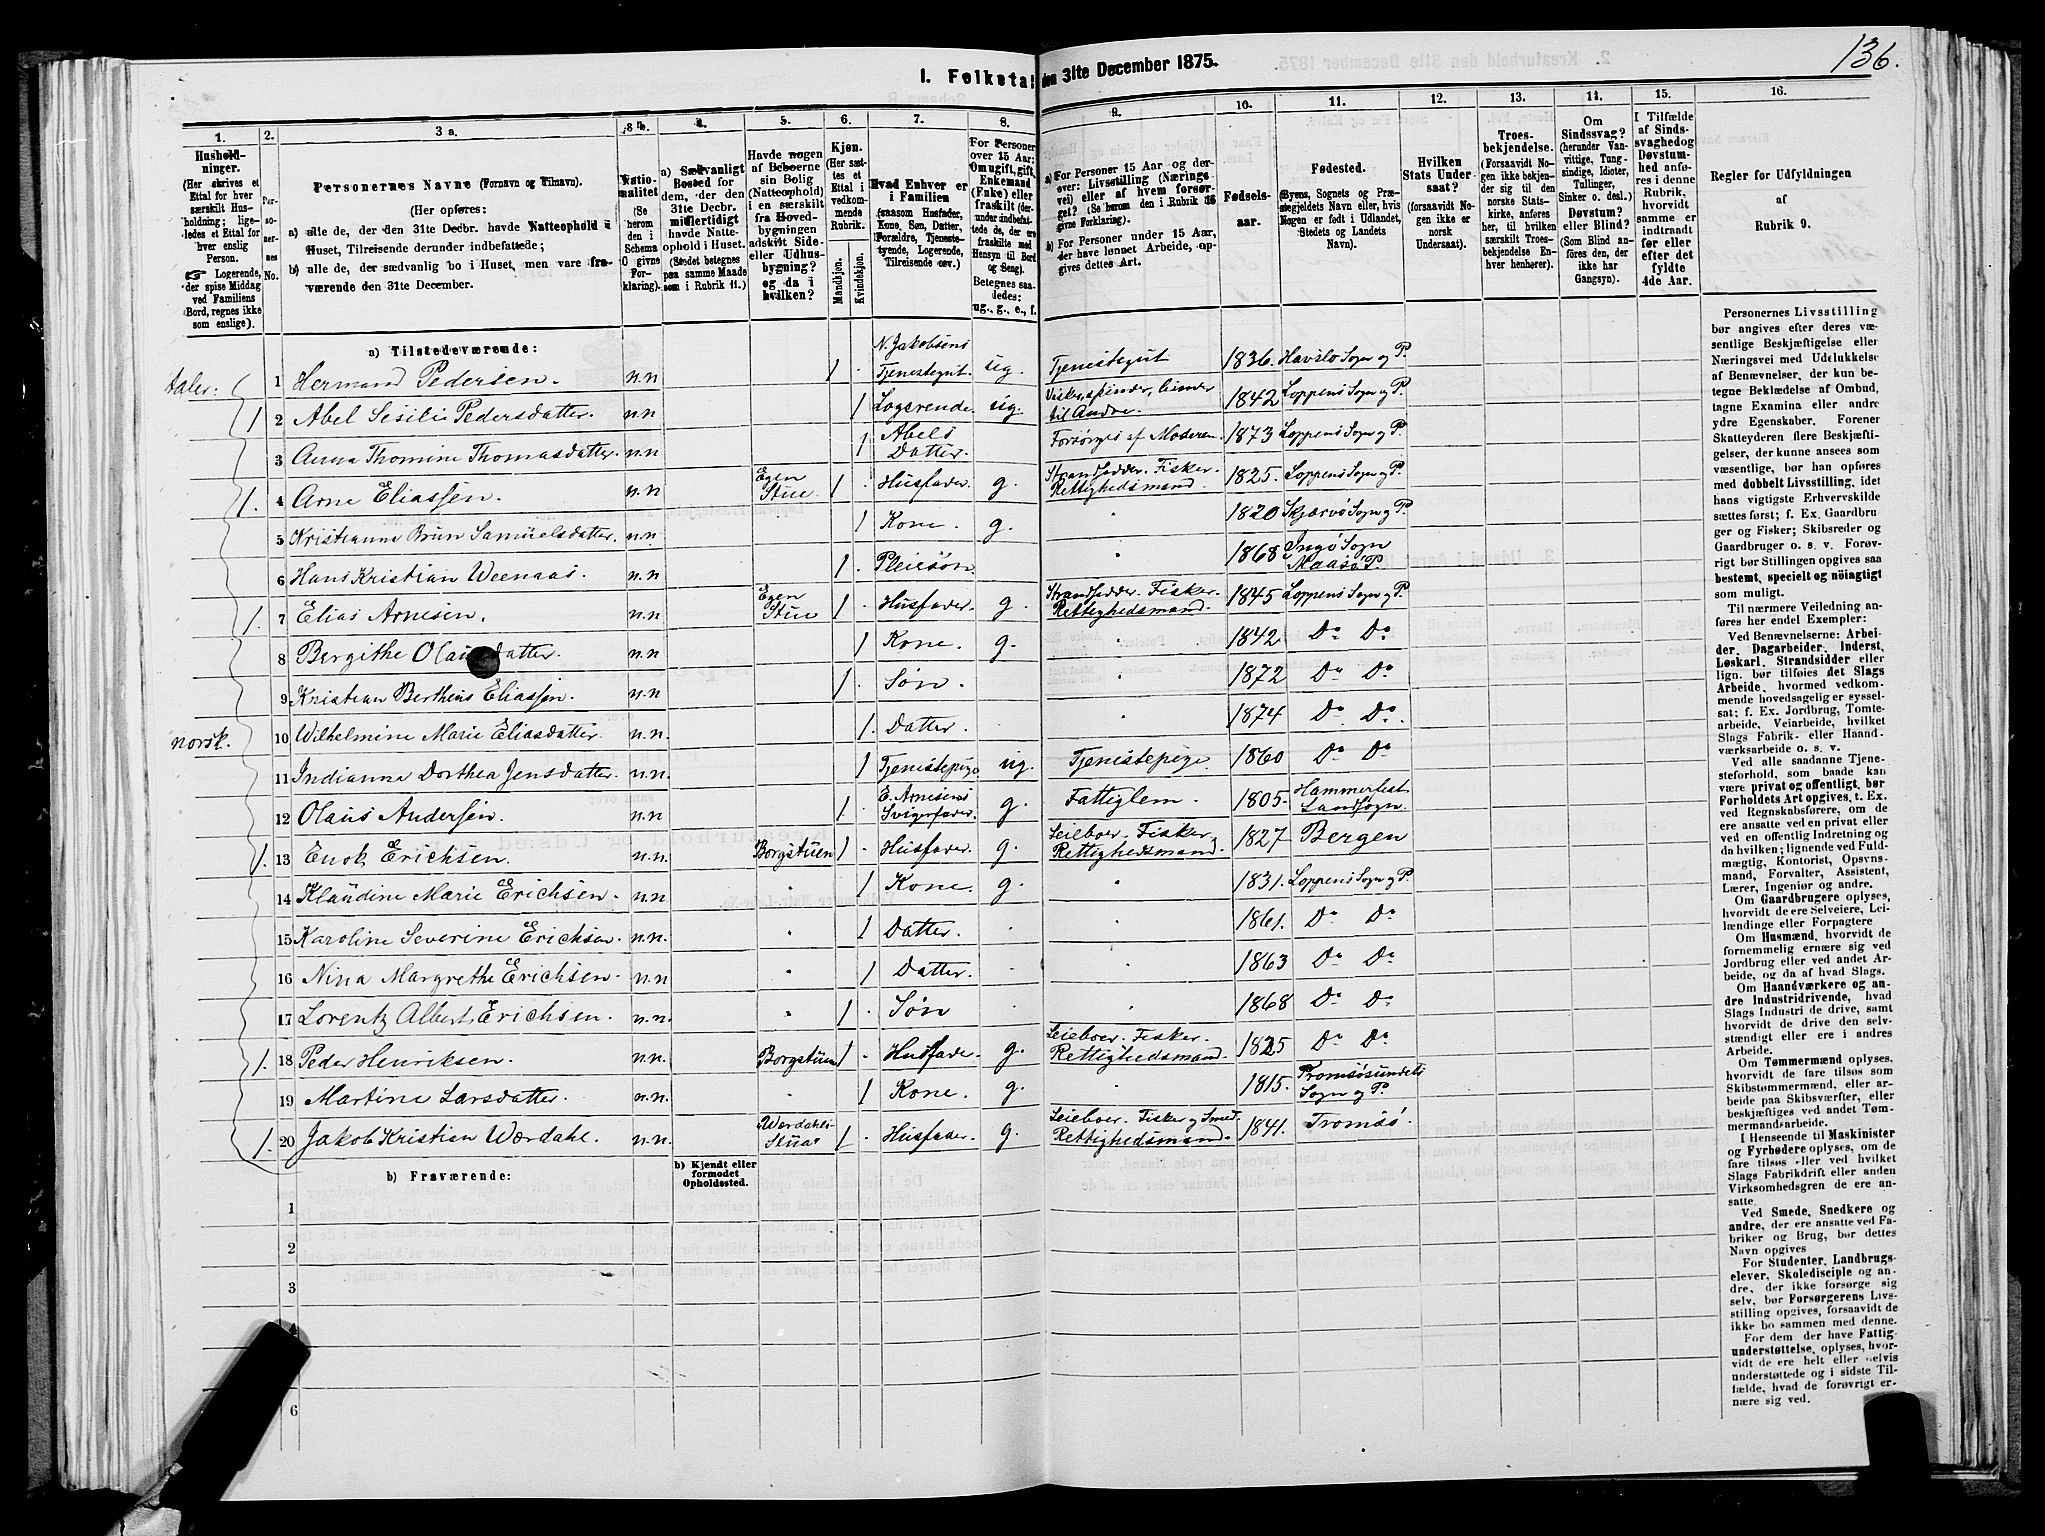 136.
1. Folketal den 31te December 1875.
1. 2. 3 a. 3 b. 4. 5. 6. 7. 8. 9. 10. 11. 12. 13. 14. 15. 16.
Husholdninger.
(Her skrives et Ettal for hver særskilt Husholdning; ligeledes et Ettal for hver enslig Person.
☞ Logerende, der spise Middag ved Familiens Bord, regnes ikke som enslige).
Personernes No.
Personernes Navne (Fornavn og Tilnavn).
(Her opføres:
a) alle de, der den 31te Decbr. havde Natteophold i Huset, Tilreisende derunder indbefattede;
b) alle de, der sædvanlig bo i Huset, men vare fraværende den 31te December.
Nationalitet (Se herom den i Schema O givne Forklaring).
a) Sædvanligt Bosted for dem, der den 31te Decbr. midlertidigt havde Natteophold i Huset. (Stedet betegnes paa samme Maade som i Rubrik 11.)
Havde nogen af Beboerne sin Bolig (Natteophold) i en særskilt fra Hovedbygningen adskilt Side- eller Udhusbygning? og da i hvilken?
Kjøn. (Her sættes et Ettal i vedkommende Rubrik.
Mandkjøn. Kvindekjøn.
Hvad Enhver er i Familien (saasom Husfader, Kone, Søn, Datter, Forældre, Tjenestetyende, Logerende, Tilreisende osv.)
For Personer over 15 Aar: Om ugift, gift, Enkemand (Enke) eller fraskilt (derunder indbefattede de, der ere fraskilte med Hensyn til Bord og Seng). Betegnes saaledes: ug., g., e., f.
a) For Personer 15 Aar og derover: Livsstilling (Næringsvei) eller af hvem forsørget? (Se herom den i Rubrik 16 givne Forklaring).
b) For Personer under 15 Aar, der have lønnet Arbeide, opgives dettes Art.
Fødselsaar.
Fødested.
(Byens, Sognets og Præstegjeldets Navn eller, hvis Nogen er født i Udlandet, Stedets og Landets Navn).
Hvilken Stats Undersaat?
(forsaavidt Nogen ikke er norsk Undersaat).
Troesbekjendelse.
(Forsaavidt Nogen ikke bekjender sig til den norske Statskirke, anføres her, til hvilken særskilt Troesbekjendelse Enhver henhører).
Om Sindssvag? (herunder Vanvittige, Tungsindige, Idioter, Tullinger, Sinker o. desl.) Døvstum? eller Blind? (Som Blind anføres den, der ikke har Gangsyn).
I Tilfælde af Sindssvaghed og Døvstumhed anføres i denne Rubrik, hvorvidt samme er indtraadt før eller efter det fyldte 4de Aar.
Regler for Udfyldningen af Rubrik 9.
a) Tilstedeværende:
1 Hermand Pedersen. n.n 1 N. Jakobsens Tjenestegut ug. Tjenestegut 1836. Havslo Sogn og P.
1 2 Abel Sesilie Pedersdatter. n.n 1 Logerende. ug. til Andre. 1842 Loppens Sogn og P.
3 Anna Thomine Thomasdatter. n.n 1 Abels Datter. Forsørges af Moderen. 1873 Loppens Sogn og P.
1. 4 Arne Eliassen. n.n Egen Stue 1 Husfader g. Strandsidder. Fisker. Rettighedsmand. 1825. Loppens Sogn og P.
5 Kristianna Brun Samuelsdatter. n.n 1 Kone. g. 1820 Skjærvø Sogn og P.
6 Hans Kristian Weenaas. n.n 1. Pleiesøn. 1868 Ingø Sogn Maasø P.
1. 7 Elias Arnesen. n.n Egen Stue 1 Husfader. g. Strandsidder. Fisker. Rettighedsmand. 1845 Loppens Sogn og P.
8 Bergithe Olausdatter. n.n 1 Kone. g. 1842 Do Do
9 Kristian Bertheus Eliassen. n.n 1. Søn. 1872 Do Do
norsk.
10 Wilhelmine Marie Eliasdatter. n.n. 1. Datter. 1874 Do Do
11 Indianna Dorthea Jensdatter. n.n. 1 Tjenestepige. ug. Tjenestepige. 1860 Do Do
12 Olaus Andersen. n.n 1. E. Arnesens Svigerfader. g. Fattiglem. 1805. Hammerfest Landsogn.
1. 13 Enok Erichsen. n.n. Borgstuen 1 Husfader. g. Leieboer. Fisker. Rettighedsmand. 1827 Bergen
14 Klaudine Marie Erichsen. n.n 1 Kone. g. 1831. Loppens Sogn og P.
15 Karoline Severine Erichsen. n.n. 1 Datter. 1861. Do Do
16 Nina Margrethe Erichsen. n.n 1 Datter. 1863 Do Do
17 Lorentz Albert Erichsen. n.n. 1 Søn 1868 Do Do
1. 18 Peder Henriksen. n.n. Borgstuen 1 Husfader. g. Leieboer. Fisker. Rettighedsmand. 1825 Do Do
19 Martine Larsdatter. n.n. 1 Kone. g. 1815. Tromsøsundets Sogn og P.
1. 20 Jakob Kristien Wærdahl. n.n. Stuas 1 Husfader. g. Leieboer. Fisker og Smed. Rettighedsmand. 1841. Tromsø.
b) Fraværende:
b) Kjendt eller formodet Opholdssted.
1
2
3
4
6
Personernes Livsstilling bør angives efter deres væsentlige Beskjæftigelse eller Næringsvei med Udelukkelse af Benævnelser, der kun betegne Beklædelse af Ombud, tagne Examina eller andre ydre Egenskaber. Forener Skatteyderen flere Beskjæftigelser, der kunne ansees som væsentlige, bør han opføres med dobbelt Livsstilling, idet hans vigtigste Erhvervskilde sættes først; f. Ex. Gaardbruger og Fisker; Skibsreder og Gaardbruger o. s. v. Forøvrigt bør Stillingen opgives saa bestemt, specielt og nøiagtigt som muligt.
Til nærmere Veiledning anføres her endel Exempler:
Ved Benævnelserne: Arbeider, Dagarbeider, Inderst, Løskarl, Strandsidder eller lign. bør tilføies det Slags Arbeide, hvormed vedkommende hovedsagelig er sysselsat; f. Ex. Jordbrug, Tomtearbeide, Veiarbeide, hvilket Slags Fabrik- eller Haandværksarbeide o. s. v.
Ved alle saadanne Tjenesteforhold, som baade kan være privat og offentligt, bør Forholdets Art opgives, t. Ex. ved Regnskabsførere, om de ere ansatte ved en privat eller ved en offentlig Indretning og da hvilken; lignende ved Fuldmægtig, Kontorist, Opsynsmand, Forvalter, Assistent, Lærer, Ingeniør og andre.
Om Gaardbrugere oplyses, hvorvidt de ere Selveiere, Leilændinge eller Forpagtere
Om Husmænd, hvorvidt de fornemmelig ernære sig ved Jordbrug eller ved andet Arbeide, og da af hvad Slags.
Om Haandværkere og andre Industridrivende, hvad Slags Industri de drive, samt hvorvidt de drive den selvstændigt eller ere i andres Arbeide.
Om Tømmermænd oplyses, hvorvidt de fare tilsøs som Skibstømmermænd, eller arbeide paa Skibsværfter, eller beskjæftiges ved andet Tømmermandsarbeide.
I Henseende til Maskinister og Fyrbødere oplyses, om de fare tilsøs eller ved hvilket Slags Fabrikdrift eller anden Virksomhedsgren de ere ansatte.
Ved Smede, Snedkere og andre, der ere ansatte ved Fabriker og Brug, bør dettes Navn opgives
For Studenter, Landbrugselever, Skoledisciple og andre, der ikke forsørge sig selv, bør Forsørgerens Livsstilling opgives, forsaavidt de ikke bo sammen med denne.
For dem der have Fattigunderstøttelse, oplyses, hvorvidt de ere helt eller delvis understøttede og i sidste Tilfælde, hvad de forøvrigt ernære sig ved.